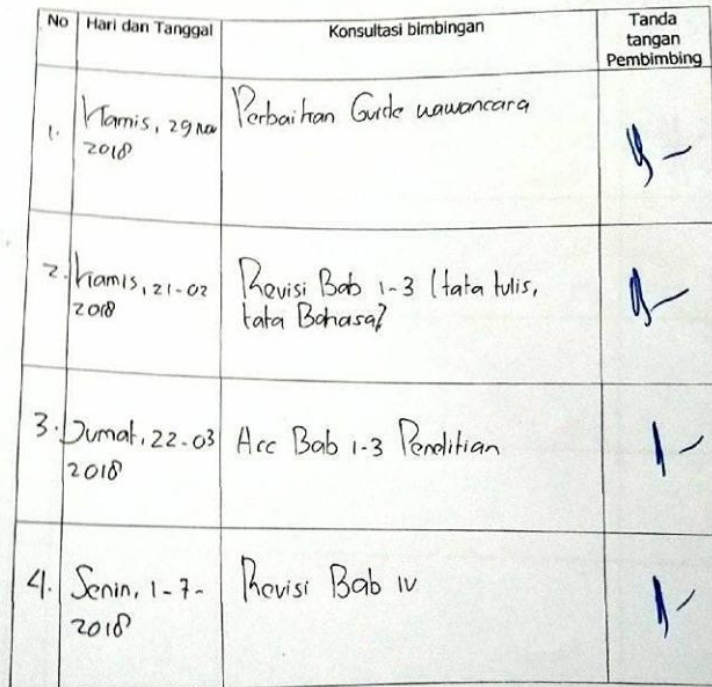 No Hari dan Tanggal Konsultasi bimbingan Tanda
tangan
Pembimbing
1. Kamis, 29 nov Perbaikan Guide wawancara
2018
2. Kamis, 21-02 Revisi Bab 1-3 (tata tulis,
2018 tata Bahasa)
3. Jumat, 22-03 Acc Bab 1-3 Penelitian
2018
4. Senin, 1-7- Revisi Bab IV
2018